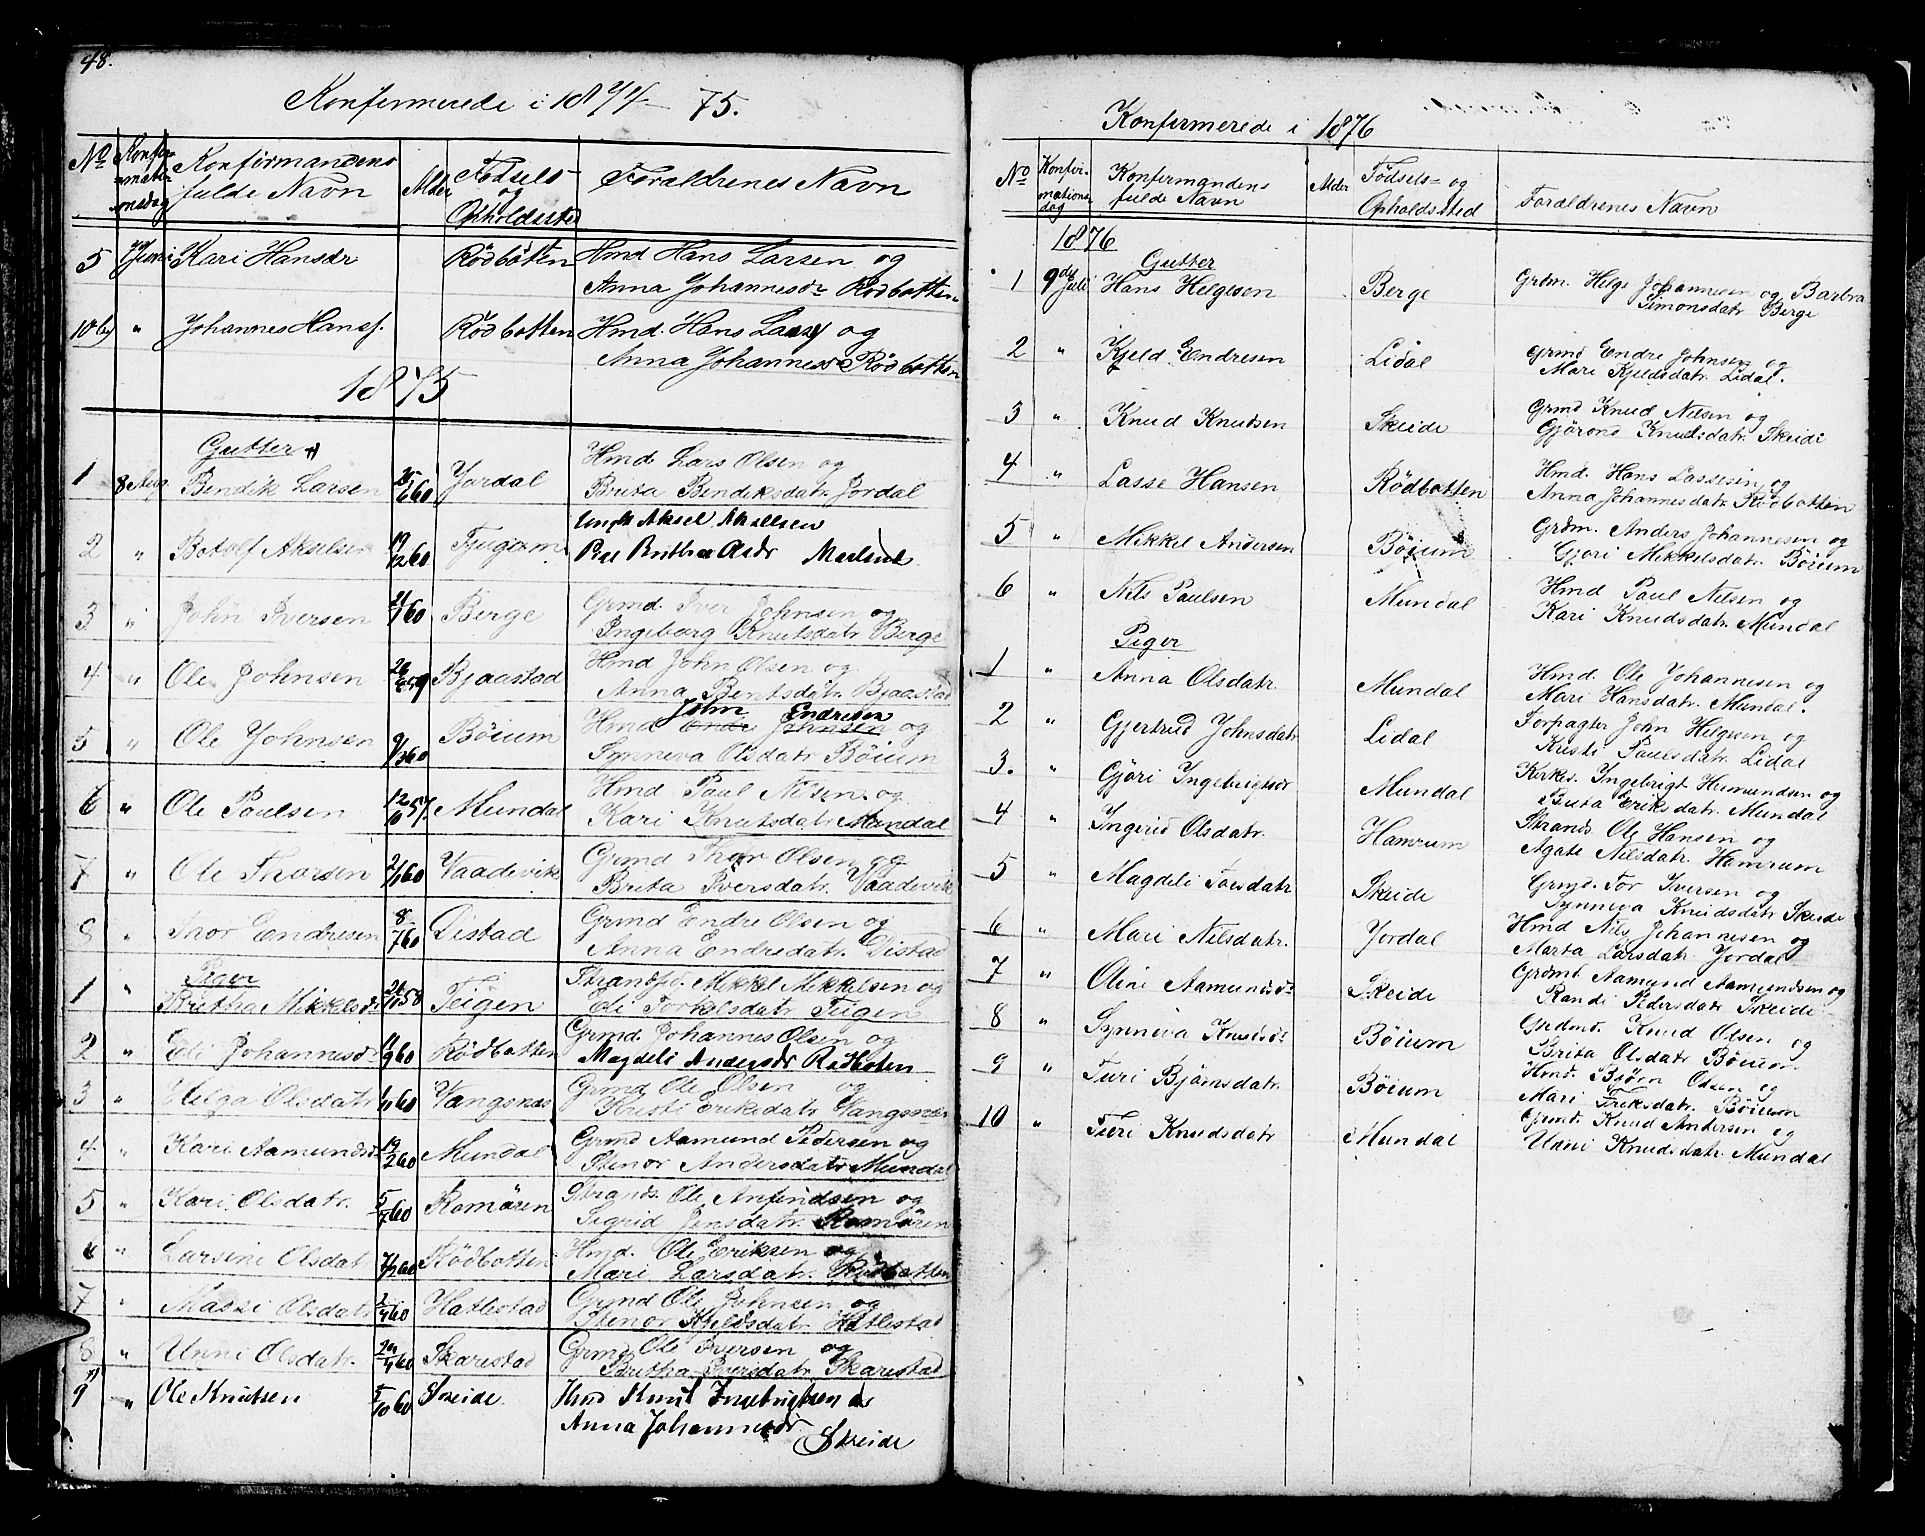 48.
Konfirmerede i 1874 75.
No Konfirmationsdag Konfirmandens fulde Navn Alder Fødsels- og Opholdssted Forældrenes Navn
5 Juni Kari Hansdr Rödbotten Hmd Hans Larsen og
Anna Johannesdr Rödbotten
" Johannes Hansf. Rödbotten Hmd. Hans Lassf og
Anna Johannesdr Rödbotten
1875
Gutter
1 8 Aug Bendik Larsen 60 Jordal Hmd. Lars Olsen og
Brita Bendiksdatr. Jordal
2 " Botolf Akselsen 19/12 60 Tjugum Ungk Aksel Akselsen
Pige Britha Olsdr
3 " John Iversen 60 Berge Grmd. Iver Johnsen og
Ingeborg Knutsdatr Berge
4 " Ole Johnsen Bjaastad Hmd John Olsen og
Anna Bentsdatr. Bjaastad
5 " Ole Johnsen 9/3 60 Böium Hmd Endre Johnsen og
John Endresen
Synneva Olsdatr Böium
6 " Ole Paulsen 12/10 57. Mundal Hmd. Paul Nilsen og
Kari Knutsdatr Mundal
7 " Ole Thorsen 2/1 60 Vaadevik Grmd Thor Olsen og
Brita Iversdatr. Vaadevik
8 " Thor Endresen 8/7 60 Distad Grmd Endre Olsen og
Anna Endredatr. Distad
Piger
1 " Britha Mikkelsdr 58 Teigen Strandsd. Mikkel Mikkelsen og
Eli Torkelsdatr Teigen
2 " Eli Johannesdr 60 Rödbotten Grmd. Johannes Olsen og
Magdeli Andersdr Rödboten
3 " Helga Olsdatr 60 Vangsnæs Grmd Ole Olsen og
Kristi Eriksdatr Vangsnæs
4 " Kari Aamundsdr 19/2 60 Mundal Grmd Aamund Pedersen og
Stenor Andersdatr Mundal
5 " Kari Olsdatr. 5/7 60 Romören Strands. Ole Anfindsen og
Sigrid Jensdatr. Romören
6 " Larsine Olsdat 60 Rödbotten Hmd. Ole Eriksen og
Mari Larsdatr. Rödbotten
7 " Massi Olsdatr 60 Hatlestad Grmd Ole Johnsen og
Stenor Kjeldsdatr. Hatlestad
8 " Unni Olsdatr. 60 Skarestad Grmd Ole Iversen og
Britha Iversdatr. Skarestad
9 " Ole Knutsen 5/10 60 Skeide Hmd Knut Ingebrigtsen og
Anna Johannesdr
Skeide
Konfirmerede i 1876
No Konfirmationsdag Konfirmandens fulde Navn Alder Fødsels- og Opholdssted Forældrenes Navn
1876
Gutter
1 9de Juli Hans Helgesen Berge Grdm. Helge Johannesen og Barbra
Simonsdatr Berge
2 " Kjeld Endresen Lidal Grmd Endre Johnsen og
Mari Kjeldsdatr. Lidal.
3 " Knud Knudsen Skeide Grmd Knud Nilsen og
Gjörond Knudsdatr. Skeide
4 " Lasse Hansen Rödbotten Hmd. Hans Lassesen og
Anna Johannesdatr. Rödbotten
5 " Mikkel Andersen Böium Grdm. Anders Johannesen og
Gjori Mikkelsdatr. Böium
6 " Nils Paulsen Mundal Hmd Paul Nilsen og
Kari Knudsdatr. Mundal
Piger
1 " Anna Olsdatr. Mundal Hmd. Ole Johannesen og
Mari Hansdatr. Mundal.
2 " Gjertrud Johnsdatr. Lidal Forpagter John Helgesen og
Kristi Paulsdatr. Lidal
3. " Gjöri Ingebrigtsdr Mundal Kirkes. Ingebrigt Humundsen og
Brita Eriksdatr. Mundal
4 " Ingerid Olsdatr. Hamrum Strands. Ole Hansen og
Agate Nilsdatr. Hamrum
5 " Magdeli Torsdatr Skeide Grmd. Tor Iversen og
Synneva Knudsdatr Skeide
6 " Mari Nilsdatr. Jordal Hmd Nils Johannesen og
Marta Larsdatr. Jordal
7 " Oline Aamundsdr Skeide Grdmd Aamund Aamundsen og
Randi Pedersdatr Skeide
8 " Synneva Knudsdr Böium Grdmd. Knud Olsen og
Brita Olsdatr Böium
9 " Turi Björnsdatr. Böium Hmd. Björn Olsen og
Mari Eriksdatr. Böium
10 " Turi Knudsdatr Mundal Grmd. Knud Andersen og
Unni Knudsdatr. Mundal